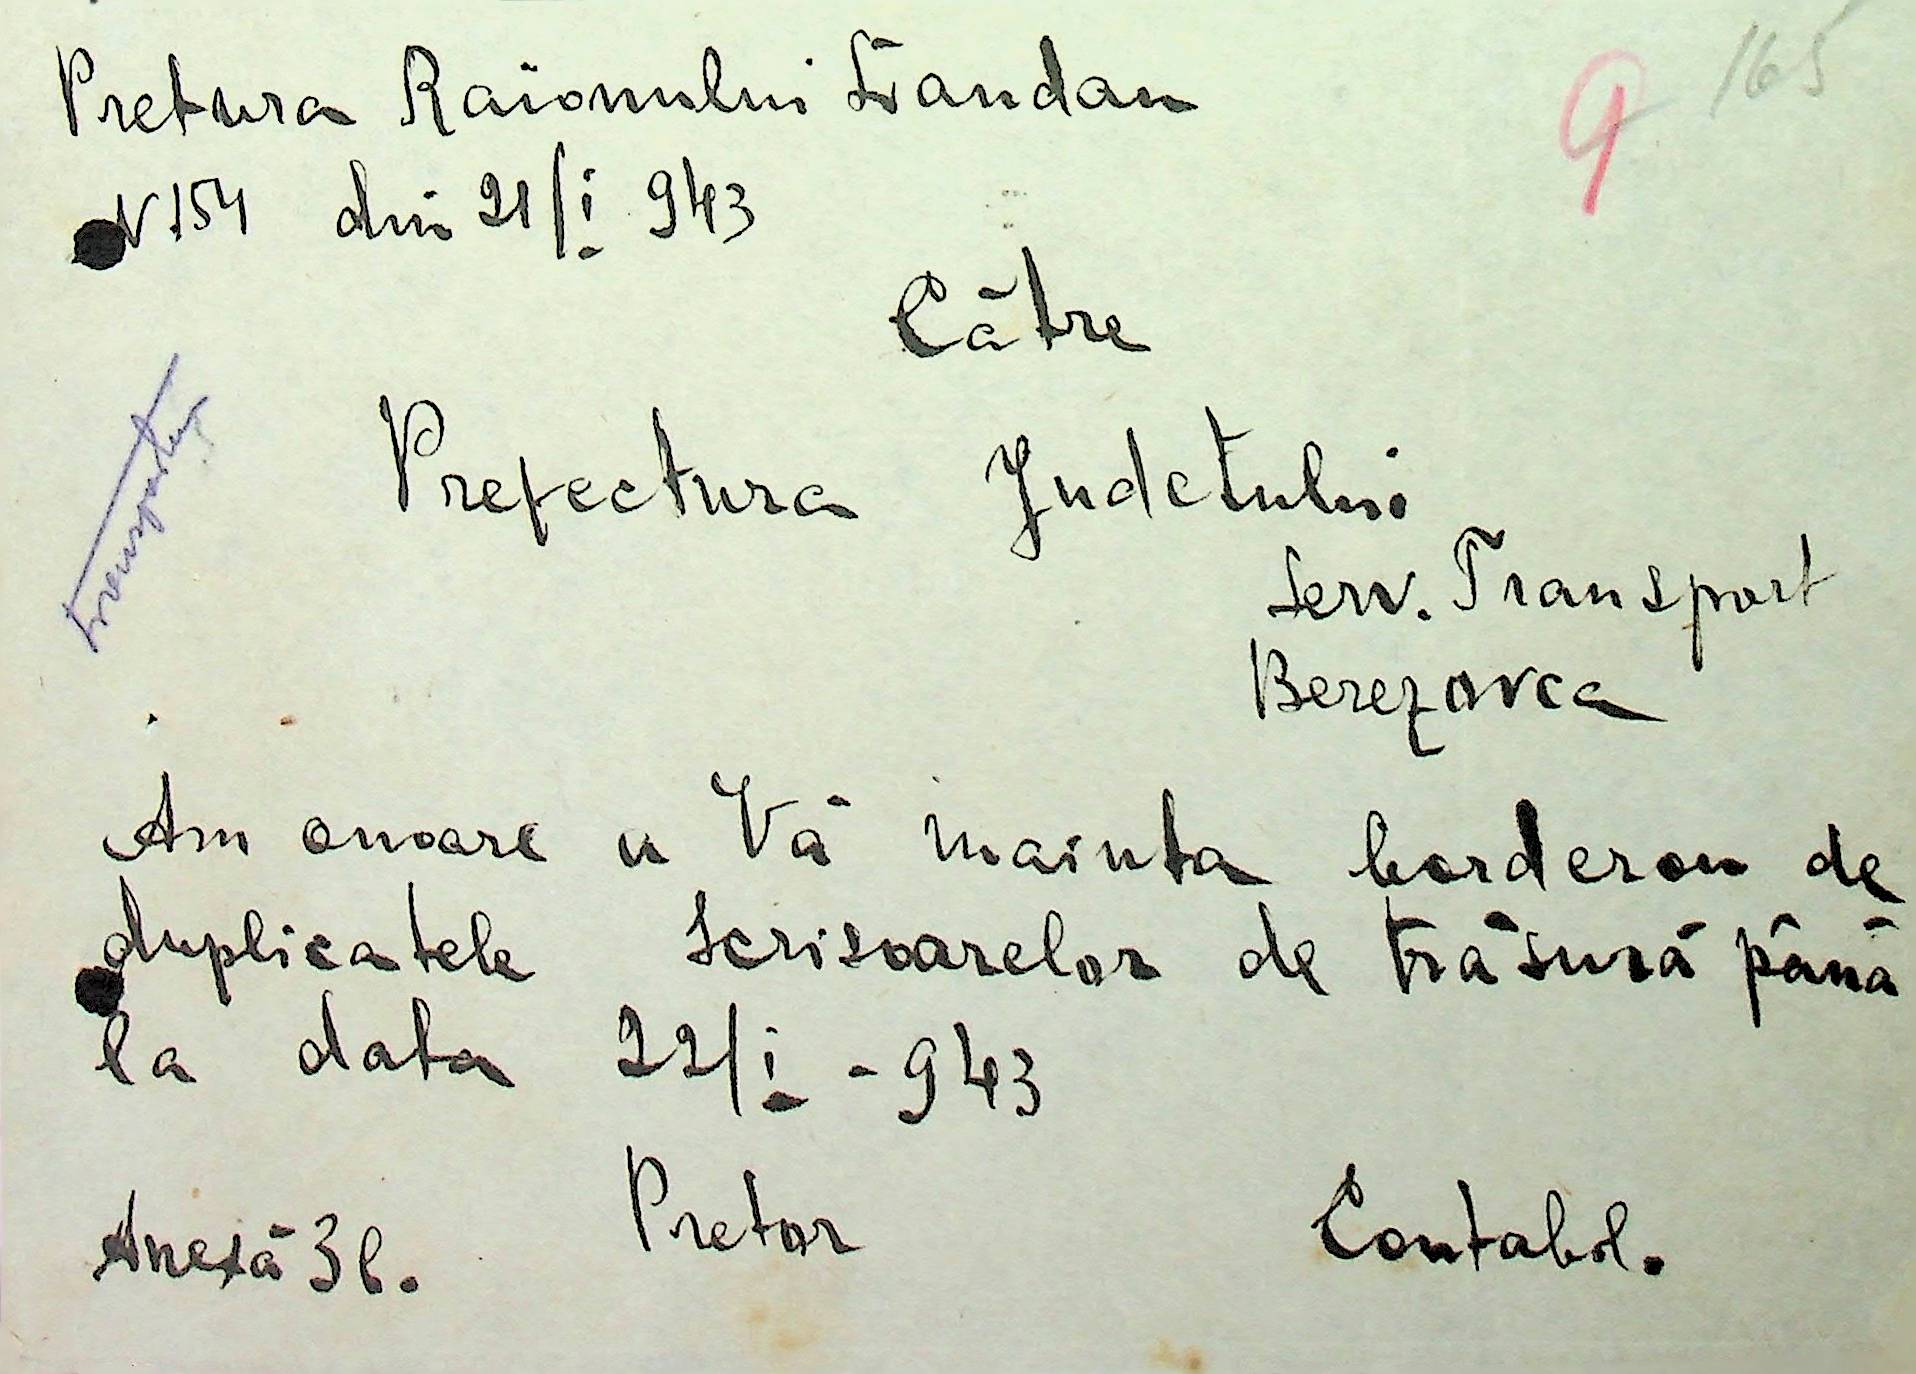 165
9
Pretura Raionului Landau
N 154 din 21/I 943
Către
Prefectura Judetului
Serv. Transport
Berezovca
transporturi
Am onoare a Vă inainta borderou de
duplicatele scrisoarelor de trăsură până
la data 22/I - 943
Pretor Contabil.
Anexă 3 b.